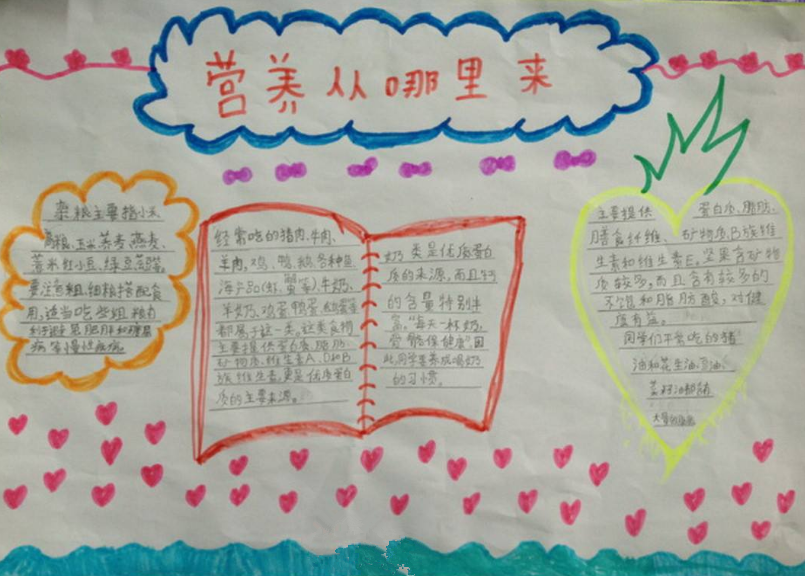 营养从哪里来
杂粮主要指小米、
高粱、玉米、荞麦、燕麦、
薏米、红小豆、绿豆芸豆等。
要注意粗细粮搭配食
用,适当吃些粗粮有
利于避免肥胖和糖尿
病等慢性疾病。
经常吃的猪肉、牛肉、
羊肉,鸡、鸭、鹅、各种鱼、
海产品(虾,蟹等)、牛奶、
羊奶、鸡蛋、鸭蛋、鹌鹑蛋
都属于这一类。这类食物
主要提供蛋白质、脂肪、
矿物质、维生素A、D和B
族维生素,更是优质蛋白
质的主要来源。
奶类是优质蛋白
质的来源,而且钙
的含量特别丰
富。"每天一杯奶,
营能保健康"因
此,同学要养成喝奶
的习惯。
主要提供 蛋白质、脂肪、
膳食纤维、矿物质、B族维
生素和维生素E。坚果含矿物
质较多,而且含有较多的
不饱和脂肪酸,对健
康有益。
同学们不常吃的猪
油和花生油、豆油、
菜籽油都